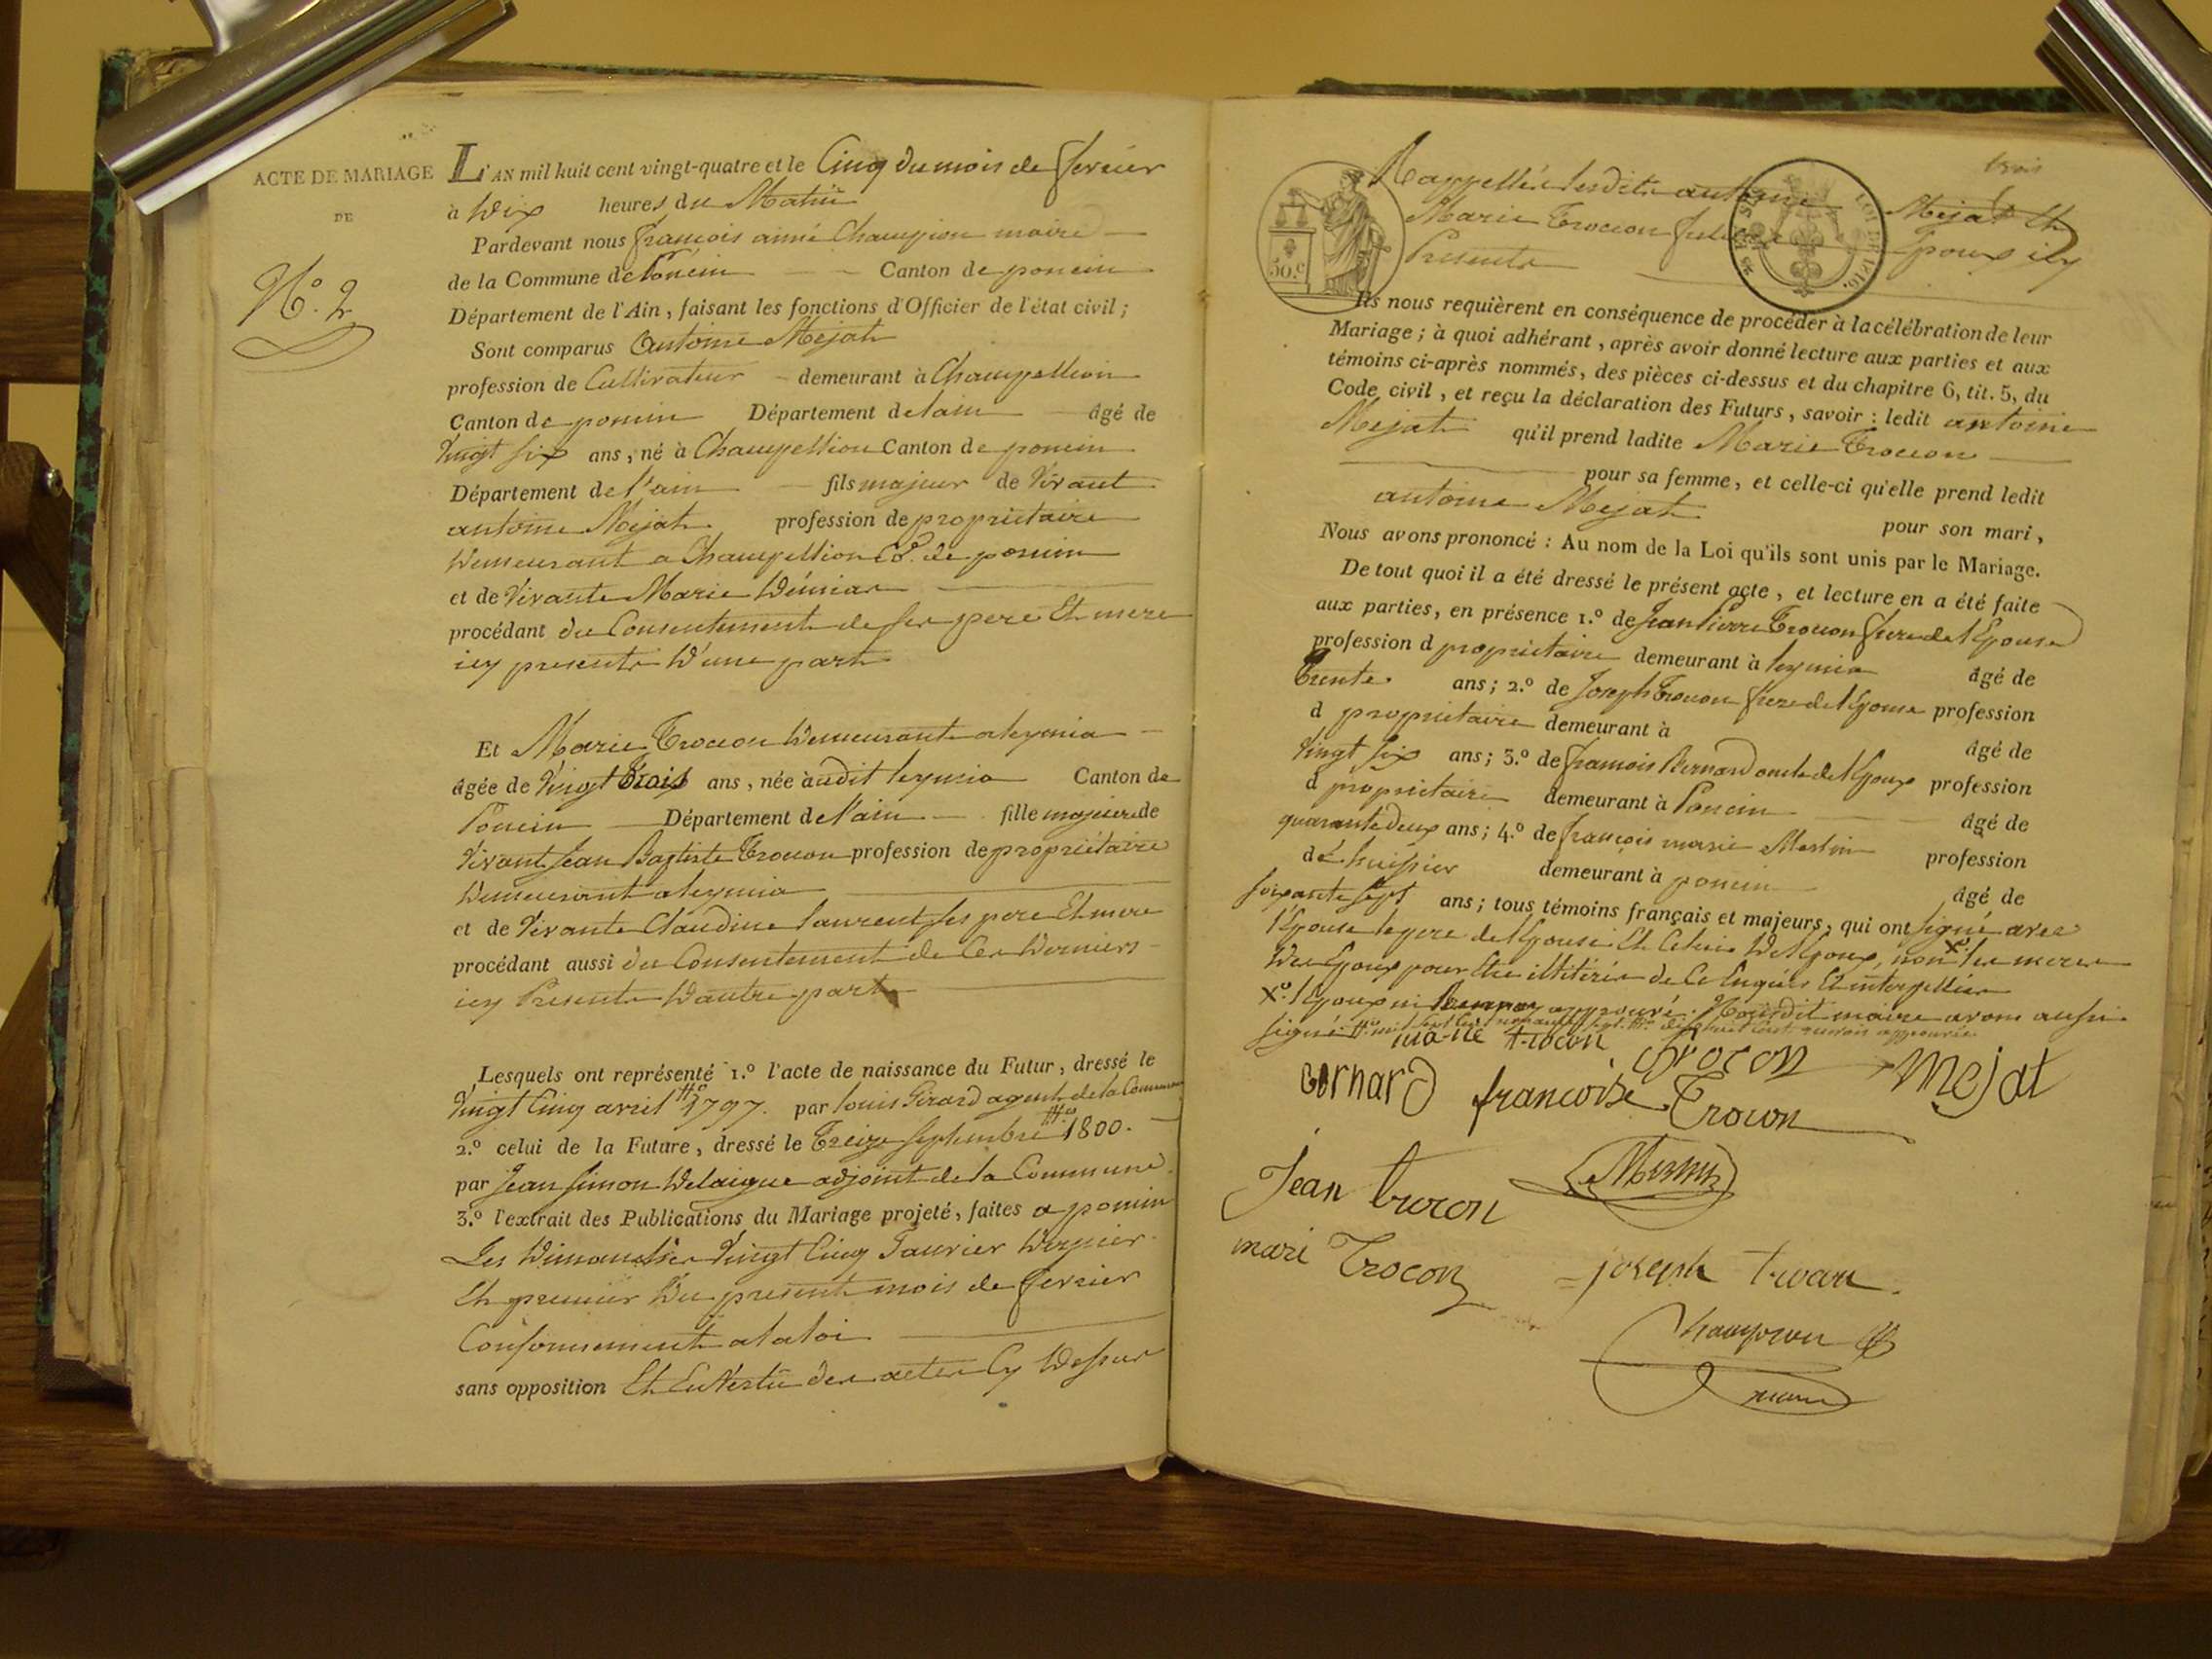 ACTE DE MARIAGE
DE
N.º 2
L'AN mil huit cent vingt-quatre et le Cinq du mois de fevrier
à Dix heures du Matin
Pardevant nous françois aimé Champion maire
de la Commune de Poncin Canton de poncin
Département de l'Ain, faisant les fonctions d'Officier de l'état civil;
Sont comparus Antoine Mejat
profession de Cultivateur demeurant à Champellion
Canton de poncin Département de lain âgé de
Vingt six ans, né à Champellion Canton de poncin
Département de l'ain fils majeur de Vivant
antoine Mejat profession de propriétaire
Demeurant a Champellion Cº. de poncin
et de Vivante Marie
procédant du Consentement de ses pere Et mere
icy presents D'une part
Et Marie Trocon Demeurante a leymia
âgée de Vingt Trois ans, née audit leymia Canton de
Poncin Département de l'ain fille majeure de
Vivant Jean Baptiste Trocon profession de propriétaire
Demeurant a leymia
et de Vivante Claudine laurent ses pere Et mere
procédant aussi du Consentement de Ces Derniers
icy Presents D'autre part
Lesquels ont représenté 1.º l'acte de naissance du Futur, dressé le
Vingt Cinq avril 1797. par louis Girard agent de la Commune
2.º celui de la Future, dressé le Treize septembre 1800.
par Jean simon Delaigue adjoint de la Commune
3.º l'extrait des Publications du Mariage projeté, faites a poncin
Les Dimanches Vingt Cinq Janvier Dernier
Et premier Du present mois de fevrier
Conformement a la loi
sans opposition Et En Vertu des actes Cy Dessus
trois
Rappellés lesdits antoine Mejat Et
Marie Trocon Epoux icy
Presents
50.c
LOI DE 1816.
Ils nous requièrent en conséquence de procéder à la célébration de leur
Mariage; à quoi adhérant, après avoir donné lecture aux parties et aux
témoins ci-après nommés, des pièces ci-dessus et du chapitre 6, tit. 5, du
Code civil, et reçu la déclaration des Futurs, savoir: ledit antoine
Mejat qu'il prend ladite Marie Trocon
pour sa femme, et celle-ci qu'elle prend ledit
antoine Mejat pour son mari,
Nous avons prononcé: Au nom de la Loi qu'ils sont unis par le Mariage.
De tout quoi il a été dressé le présent acte, et lecture en a été faite
aux parties, en présence 1.º de Jean Pierre Trocon frere de l'Epouse
profession d propriétaire demeurant à leymia âgé de
Trente ans; 2.º de Joseph Trocon frere de l'Epouse profession
d propriétaire demeurant à âgé de
Vingt six ans; 3.º de françois Bernard oncle de l'Epoux profession
d propriétaire demeurant à Poncin âgé de
quarante deux ans; 4.º de françois marie Merlin profession
d'huissier demeurant à poncin âgé de
soixante sept ans; tous témoins français et majeurs, qui ont signé avec
l'Epouse le pere de l'Epouse Et Celui De l'Epoux, non les meres
Des Epoux pour Etre illitérés de Ce Enquis Et interpellées
Xº. l'Epoux ni approuvé. Nousdit maire avons aussi
signé.
marie trocon
trocon
Mejat
bernard
francoise Trocon
Jean trocon
Merlin
mari Trocon
joseph trocon
Champion
maire